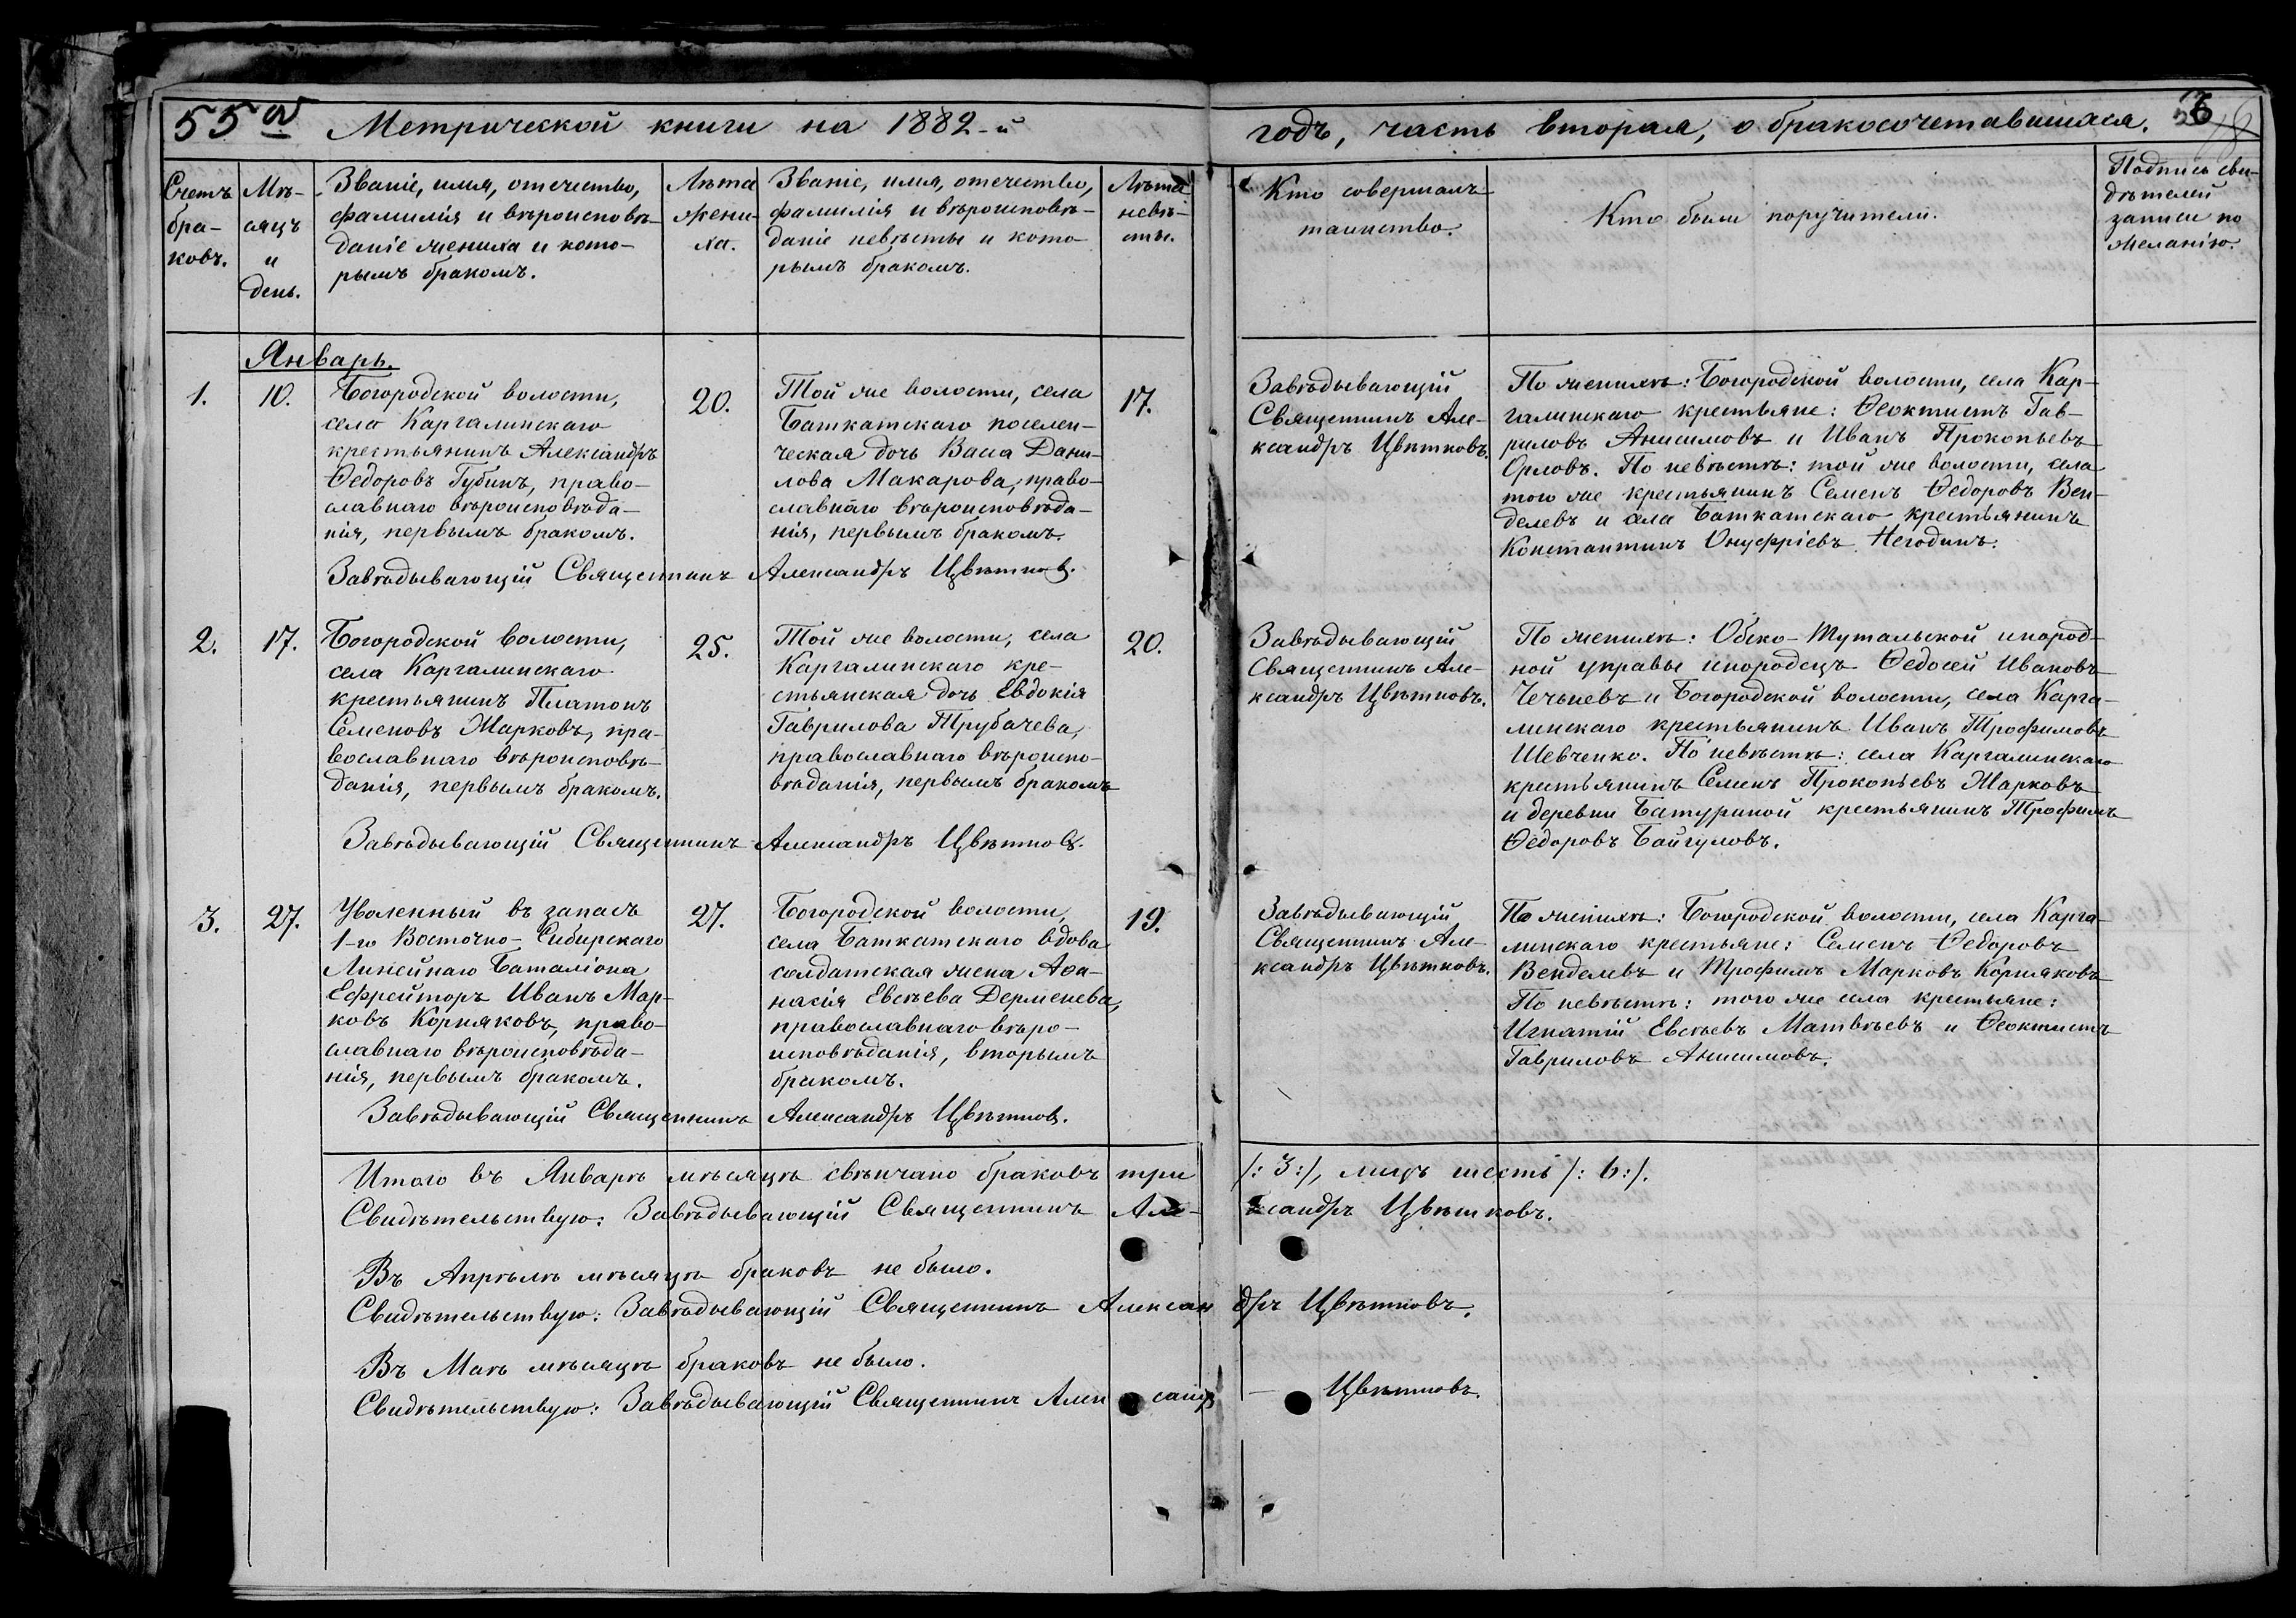 55 об
Метрической книги на 1882-й
годъ, часть вторая, о бракосочетавшихся.
Счетъ
бра-
ковъ.
Мѣ-
сяцъ
и
день.
Званіе, имя, отечество,
фамилія и вѣроисповѣ-
даніе жениха и кото-
рымъ бракомъ.
Лѣта
жени-
ха.
Званіе, имя, отечество,
фамилія и вѣроисповѣ-
даніе невѣсты и кото-
рымъ бракомъ.
Лѣта
невѣ-
сты.
Кто совершалъ
таинство.
Кто были поручители.
Подпись сви-
дѣтелей
записи по
желанію.
Январь.
1.
10.
Богородской волости,
села Каргалинскаго
крестьянинъ Александръ
Ѳедоровъ Губинъ, право-
славнаго вѣроисповѣда-
нія, первымъ бракомъ.
20.
Той же волости, села
Баткатскаго поселен-
ческая дочь Васса Дани-
лова Макарова, право-
славнаго вѣроисповѣда-
нія, первымъ бракомъ.
17.
Завѣдывающій
Священникъ Але-
ксандръ Цвѣтковъ.
По женихѣ: Богородской волости, села Кар-
галинскаго крестьяне: Ѳеоктистъ Гав-
риловъ Анисимовъ и Иванъ Прокопьевъ
Орловъ. По невѣстѣ: той же волости, села
того же крестьянинъ Семенъ Ѳедоровъ Вен-
делевъ и села Баткатскаго крестьянинъ
Константинъ Онуфріевъ Негодинъ.
Завѣдывающій Священникъ Александръ Цвѣтковъ.
2.
17.
Богородской волости,
села Каргалинскаго
крестьянинъ Платонъ
Семеновъ Жарковъ, пра-
вославнаго вѣроисповѣ-
данія, первымъ бракомъ.
25.
Той же волости, села
Каргалинскаго кре-
стьянская дочь Евдокія
Гаврилова Трубачева,
православнаго вѣроиспо-
вѣданія, первымъ бракомъ
20.
Завѣдывающій
Священникъ Але-
ксандръ Цвѣтковъ.
По женихѣ: Обско-Тутальской инород-
ной управы инородецъ Ѳедосей Ивановъ
Чечневъ и Богородской волости, села Карга-
линскаго крестьянинъ Иванъ Трофимовъ
Шевченко. По невѣстѣ: села Каргалинскаго
крестьянинъ Семенъ Прокопьевъ Жарковъ
и деревни Батуриной крестьянинъ Трофимъ
Ѳедоровъ Байгуловъ.
Завѣдывающій Священникъ Александръ Цвѣтковъ.
3.
27.
Уволенный въ запасъ
1-го Восточно-Сибирскаго
Линейнаго Баталіона
Ефрейторъ Иванъ Мар-
ковъ Корняковъ, право-
славнаго вѣроисповѣда-
нія, первымъ бракомъ.
27.
Богородской волости,
села Баткатскаго вдова
солдатская жена Аѳа-
насія Евсѣева Дерменева,
православнаго вѣро-
исповѣданія, вторымъ
бракомъ.
19.
Завѣдывающій
Священникъ Але-
ксандръ Цвѣтковъ.
По женихѣ: Богородской волости, села Карга-
линскаго крестьяне: Семенъ Ѳедоровъ
Венделевъ и Трофимъ Марковъ Корняковъ
По невѣстѣ: того же села крестьяне:
Игнатій Евсѣевъ Матвѣевъ и Ѳеоктистъ
Гавриловъ Анисимовъ.
Завѣдывающій Священникъ Александръ Цвѣтковъ.
Итого въ Январѣ мѣсяцѣ свѣнчано браковъ три /: 3 :/, лицъ шесть /: 6 :/.
Свидѣтельствую: Завѣдывающій Священникъ Але-ксандръ Цвѣтковъ.
Въ Апрѣлѣ мѣсяцѣ браковъ не было.
Свидѣтельствую: Завѣдывающій Священникъ Александръ Цвѣтковъ.
Въ Маѣ мѣсяцѣ браковъ не было.
Свидѣтельствую: Завѣдывающій Священникъ Александръ Цвѣтковъ.